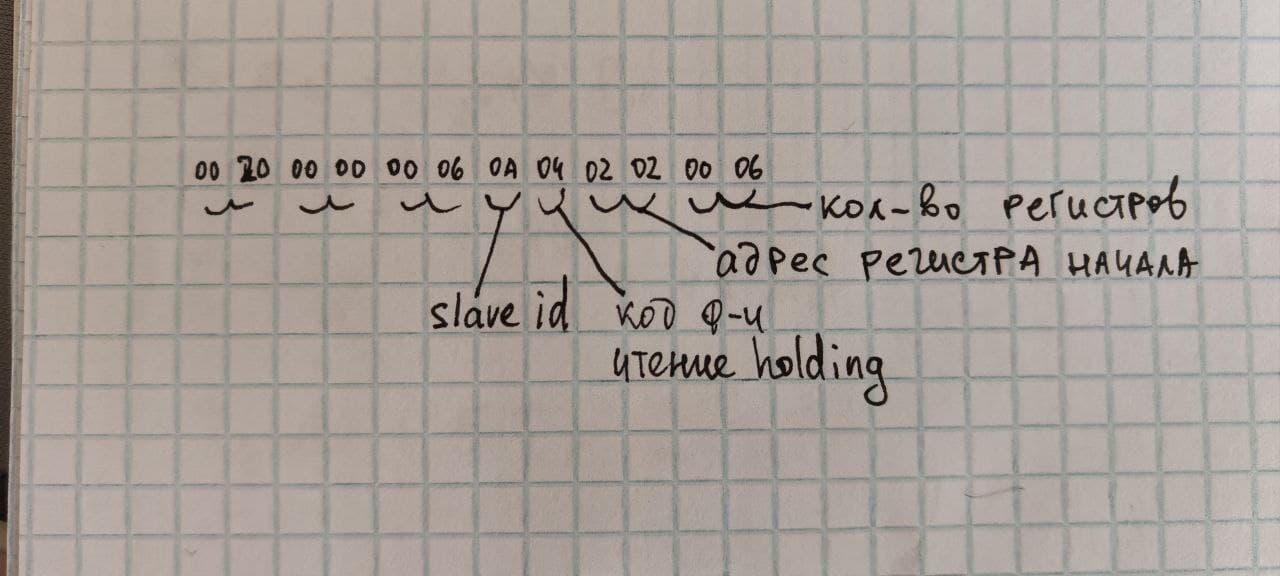 00 20 00 00 00 06 0A 04 02 02 00 06
кол-во регистров
адрес регистра начала
slave id код ф-и
чтение holding